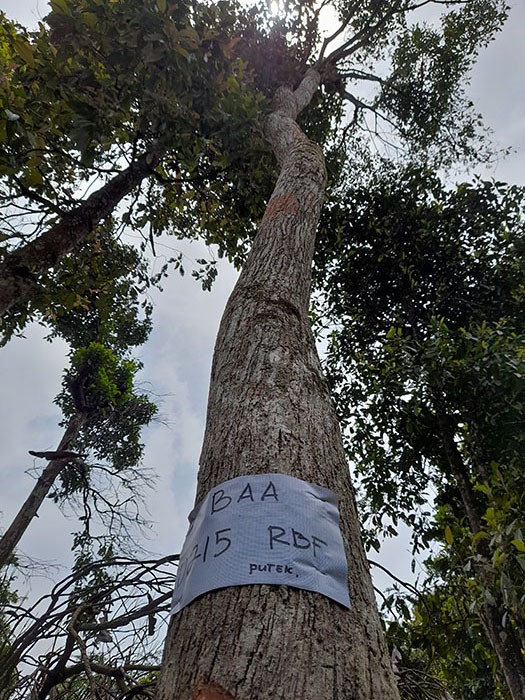 BAA
215 RBF
PUTEK.